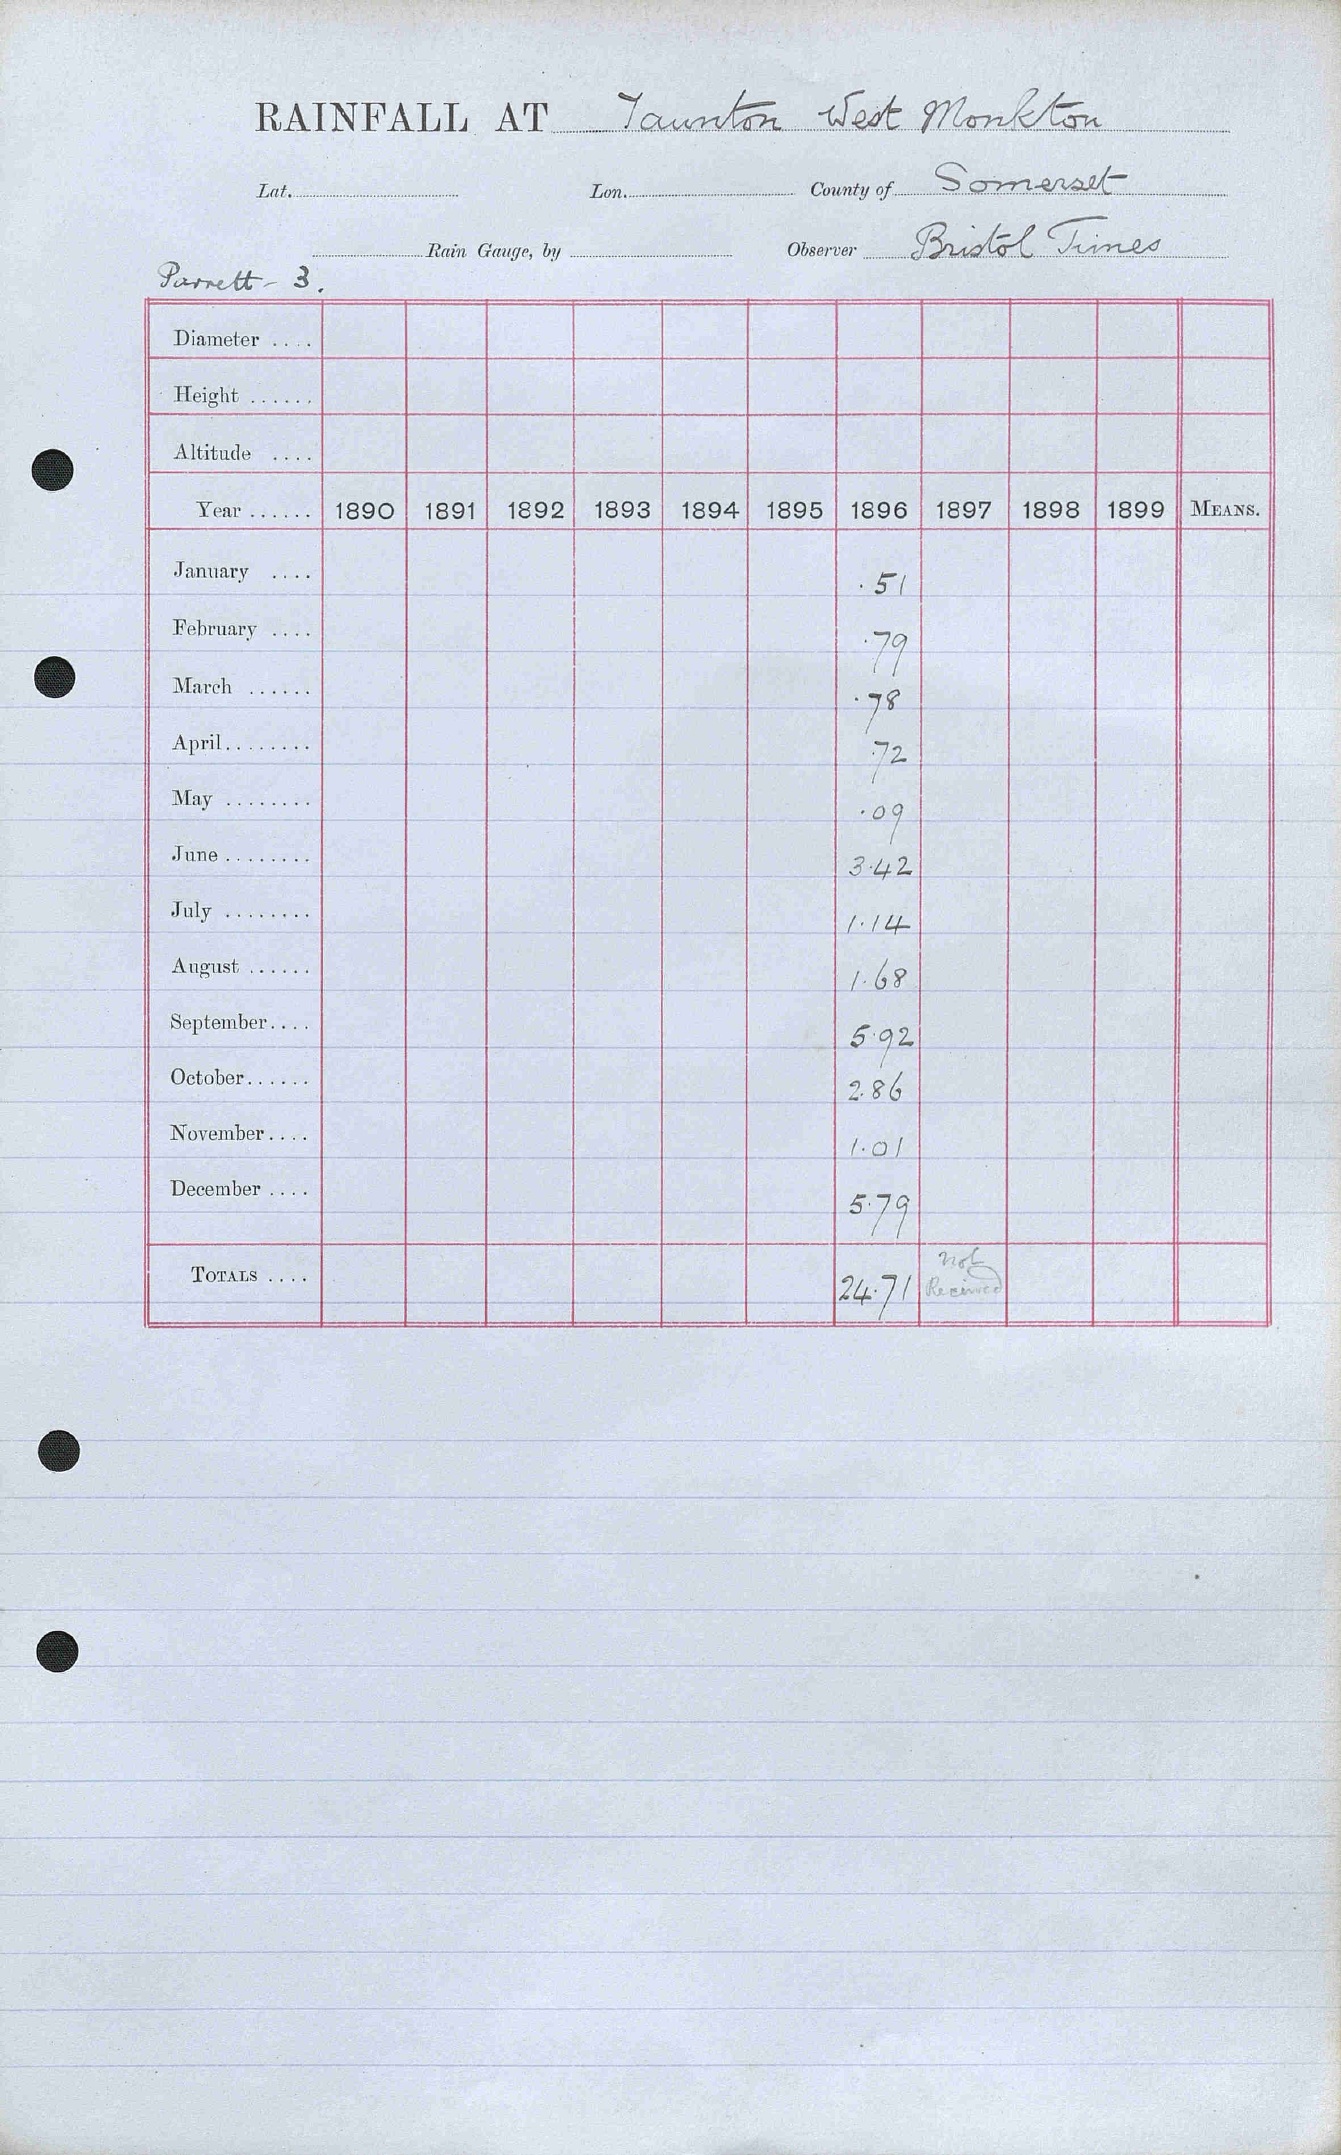 RAINFALL AT Taunton West Monkton
Lat. Lon. County of Somerset
Rain Gauge, by Observer Bristol Times
Parrett - 3.
Diameter ....
Height ......
Altitude ....
Year ...... 1890 1891 1892 1893 1894 1895 1896 1897 1898 1899 MEANS.
January .... .51
February .... .79
March ...... .78
April........ .72
May ........ .09
June ........ 3.42
July ........ 1.14
August ...... 1.68
September.... 5.92
October...... 2.86
November.... 1.01
December .... 5.79
TOTALS .... 24.71 Not Received